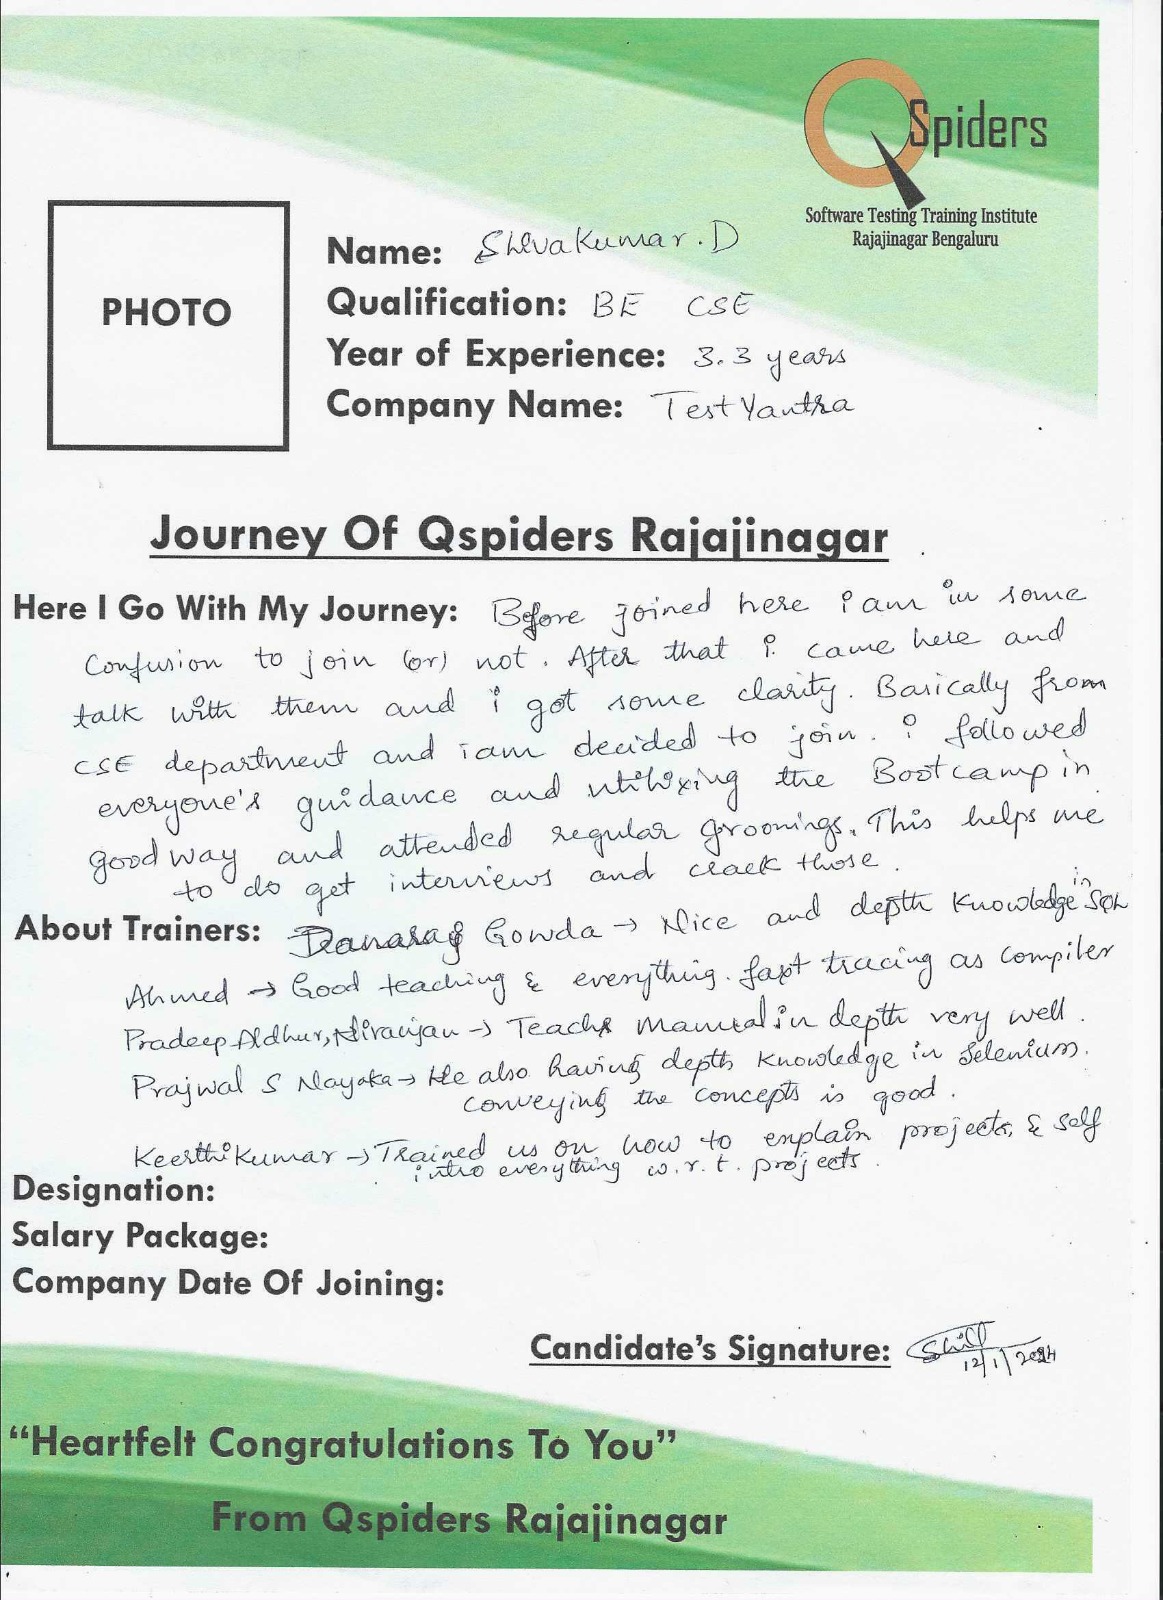 QSpiders
Software Testing Training Institute
Rajajinagar Bengaluru
PHOTO
Name: Shivakumar.D
Qualification: BE CSE
Year of Experience: 3.3 years
Company Name: TestYantra
Journey Of Qspiders Rajajinagar
Here I Go With My Journey: Before joined here i am in some
Confusion to join (or) not. After that i came here and
talk with them and i got some clarity. Basically from
CSE department and i am decided to join. i followed
everyone's guidance and utilixing the Bootcamp in
good way and attended regular groomings. This helps me
to do get interviews and crack those.
About Trainers: Gowda → Nice and depth Knowledge in SQL
Ahmed → Good teaching & everything. fast tracing as compiler
Pradeep Aldhur, Niranjan → Teachs manual in depth very well.
Prajwal S Nayaka → He also having depth knowledge in Selenium.
conveying the concepts is good.
Keerthikumar → Trained us on how to explain projects, & self
intro everything w.r.t. projects.
Designation:
Salary Package:
Company Date Of Joining:
Candidate's Signature:
12/1/2024
“Heartfelt Congratulations To You”
From Qspiders Rajajinagar